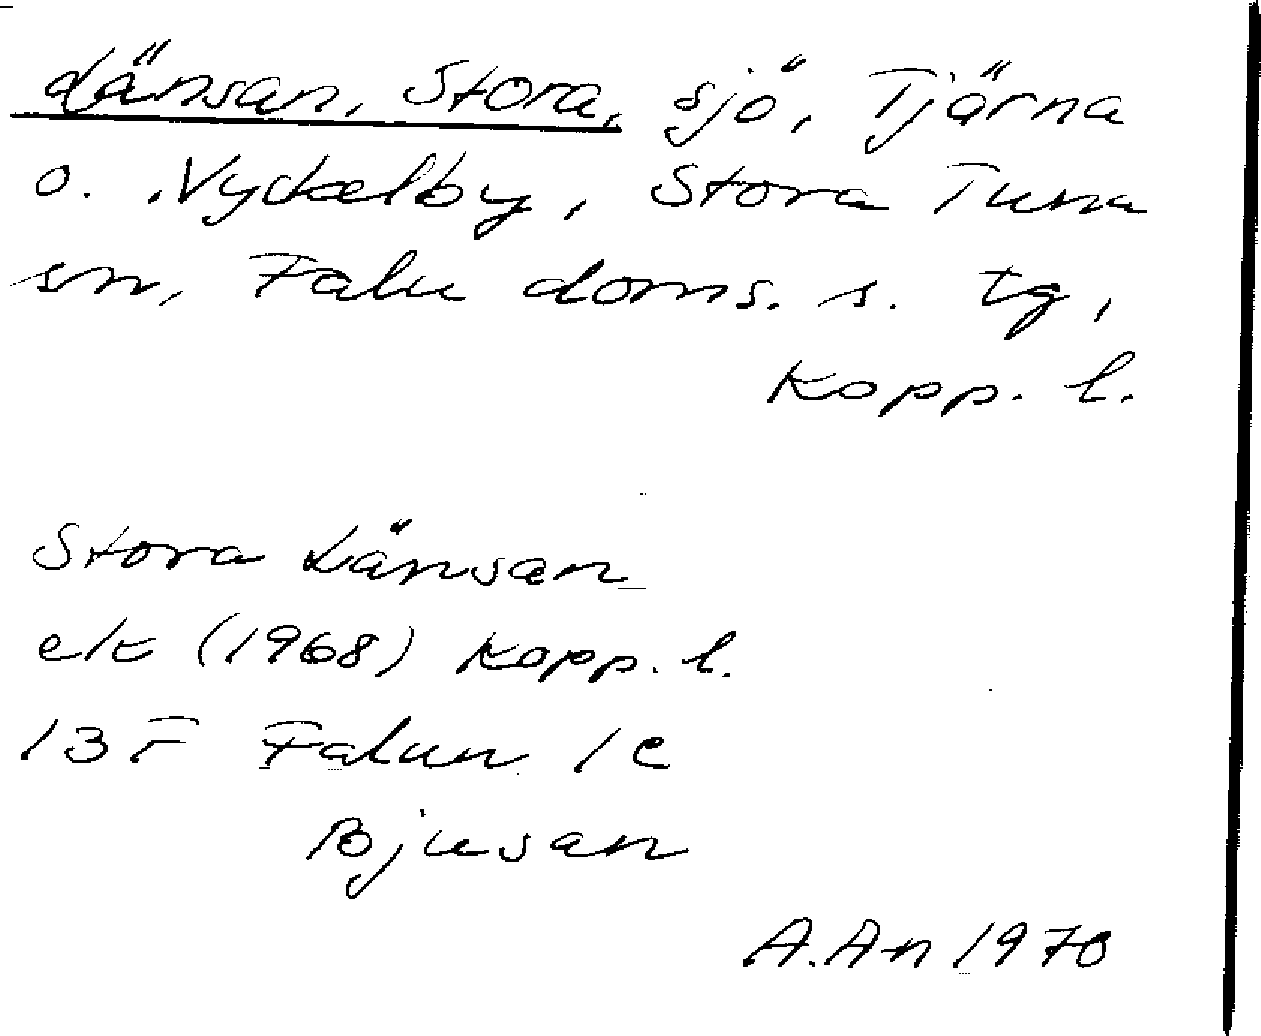 Länsan, Stora, sjö, Tjärna
o. Nyckelby, Stora Tuna
sn, Falu doms. s. tg,
Kopp. l.
Stora Länsan
ek (1968) Kopp. l.
13 F Falun 1 c
Bjusan
A.An 1970